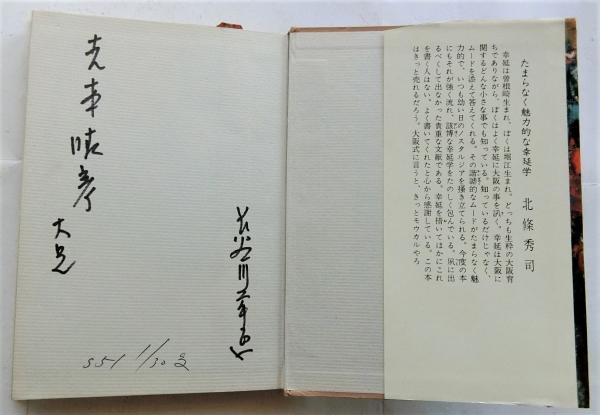 たまらなく魅力的な幸延学
北條秀司
幸延は曽根崎生まれ、ぼくは堀江生まれ。どっちも生粋の大阪育
ちでありながら、ぼくはよく幸延に大阪の事を訊く。幸延は大阪に
関するどんな小さな事でも知っている。知っているだけじゃなく、
ムードを添えて答えてくれる。その諧謔的なムードがたまらなく魅
力的で、いつも幼い日のノスタルジアを掻き立てられる。今度の本
にもそれが強く流れ、該博な幸延学をたのしく包んでいる。夙に出
るべくして出なかった貴重な文献である。幸延を措いてほかにこれ
を書く人はない。よく書いてくれたと心から感謝している。この本
はきっと売れるだろう。大阪式に言うと、きっとモウカルやろ
長谷川幸延
彦
大兄
S51 1/30